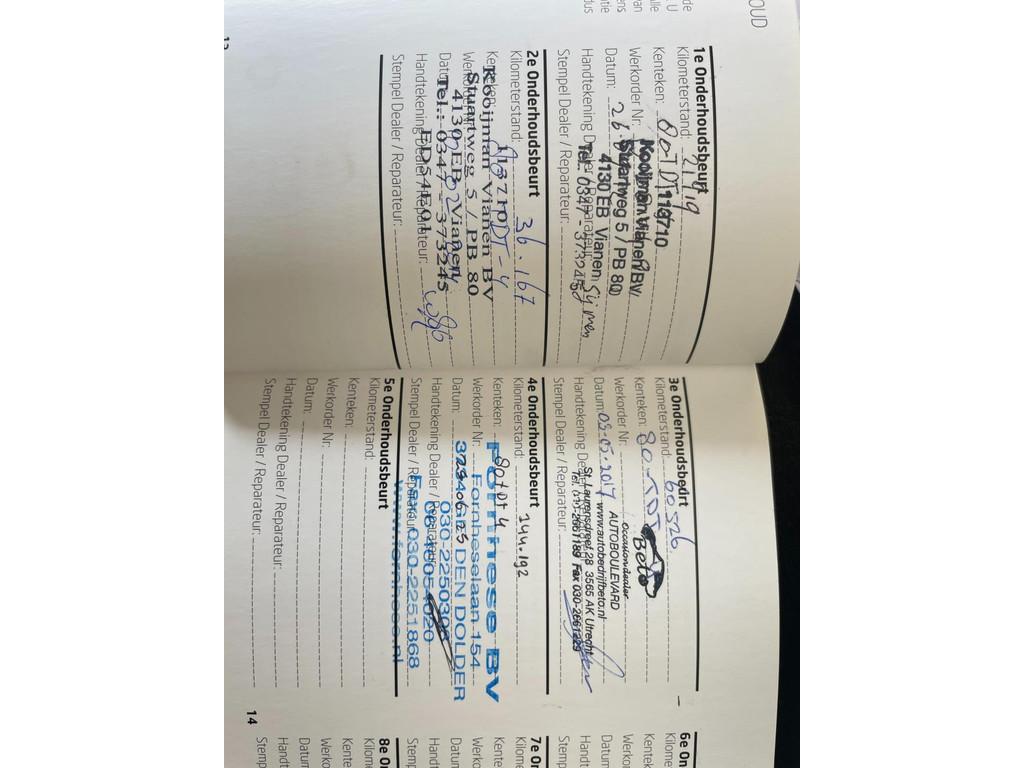 OUD
1e Onderhoudsbeurt
Kilometerstand: 21719
Kenteken: 80-TDT-4
119710
Werkorder Nr:
Kooijman Vianen BV
Stuartweg 5 / PB 80
Datum: 26
4130 EB Vianen
Handtekening Dealer / Reparateur:
Tel.: 0347 - 373245
Stempel Dealer / Reparateur:
2e Onderhoudsbeurt
Kilometerstand: 36.167
Kenteken: 80-TDT-4
113710
Kooijman Vianen BV
Werkorder Nr:
Stuartweg 5 / PB 80
4130 EB Vianen
Datum:
Tel.: 0347 - 373245
Handtekening Dealer / Reparateur:
ED54E01
Stempel Dealer / Reparateur:
3e Onderhoudsbeurt
Kilometerstand: 60.526
Kenteken: 80-TDT-4
Beto
Werkorder Nr:
Occasiondealer
AUTOBOULEVARD
Datum: 03-05-2017
www.autobedrijfbeto.nl
St. Laurensdreef 28 3565 AK Utrecht
Handtekening Dealer / Reparateur:
Tel. 030-2661189 Fax 030-2661229
Stempel Dealer / Reparateur:
4e Onderhoudsbeurt
Kilometerstand: 144.192
Kenteken: 80TDT4
Fornhese BV
Werkorder Nr:
Fornheselaan 154
Datum:
3734 GE DEN DOLDER
030-2250306
Handtekening Dealer / Reparateur:
06-40054020
Stempel Dealer / Reparateur:
Fax: 030-2251868
www.fornhese.nl
5e Onderhoudsbeurt
Kilometerstand:
Kenteken:
Werkorder Nr:
Datum:
Handtekening Dealer / Reparateur:
Stempel Dealer / Reparateur:
14
6e On
Kilome
Kentek
Werko
Datum
Handt
Stemp
7e On
Kilome
Kente
Werko
Datu
Hand
Stemp
8e On
Kilom
Kente
Werko
Datum
Handt
Stemp